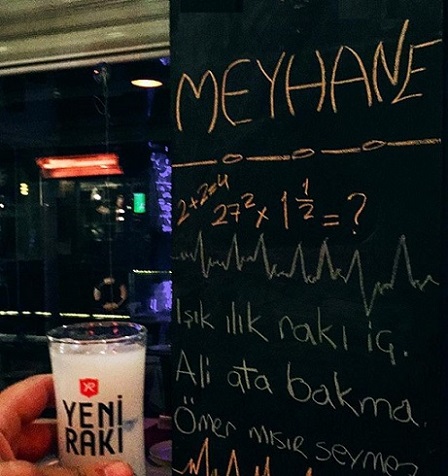 MEYHANE
2+2=4
27² x 1 1/2 = ?
Işık ılık rakı iç.
Ali ata bakma.
Ömer mısır seymez
YR
YENİ
RAKI